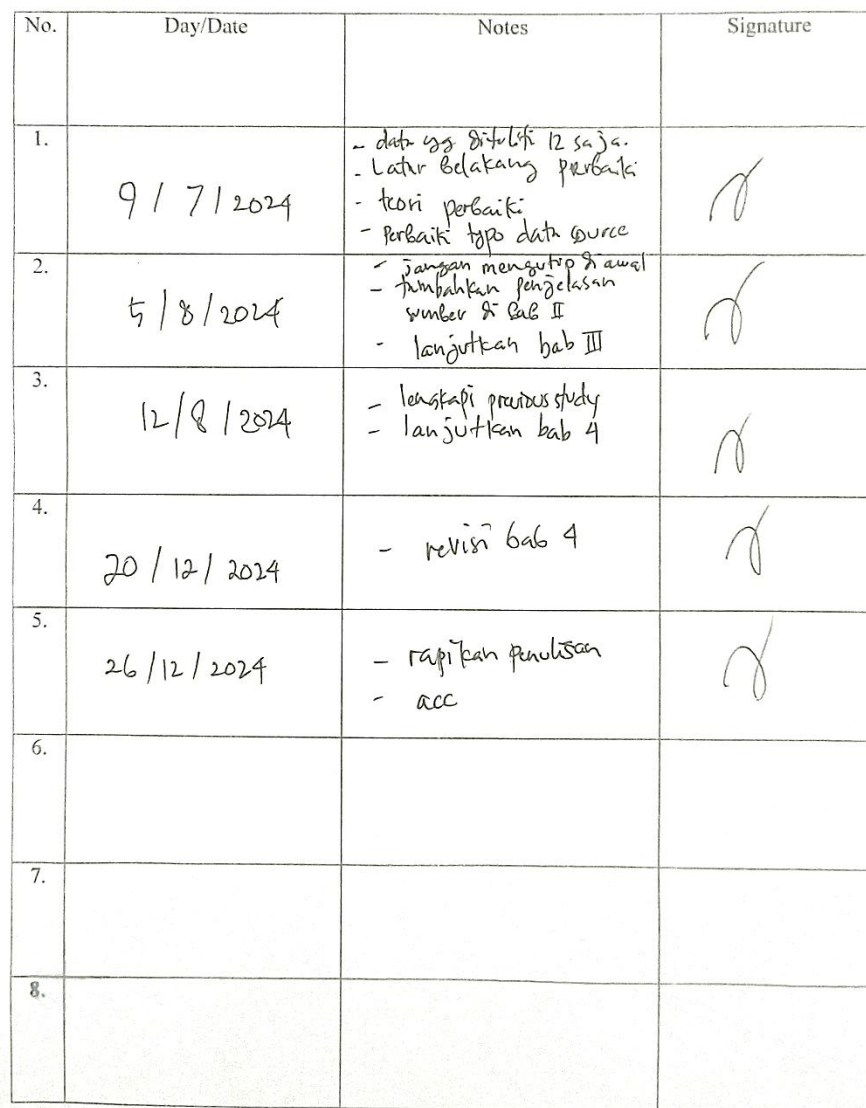 No. Day/Date Notes Signature
1. 9 / 7 / 2024
- data yg diteliti 12 saja.
- Latar Belakang perbaiki
- teori perbaiki
- Perbaiki typo data source
2. 5 / 8 / 2024
- jangan mengutip di awal
- tambahkan penjelasan
sumber di bab II
- lanjutkan bab III
3. 12 / 8 / 2024
- lengkapi previous study
- lanjutkan bab 4
4. 20 / 12 / 2024
- revisi bab 4
5. 26 / 12 / 2024
- rapikan penulisan
- acc
6.
7.
8.